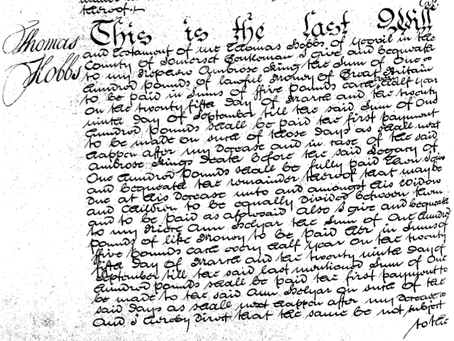 thereof
This is the last Will
Thomas
Hobbs
and Testament of me Thomas Hobbs of Yeovil in the
County of Somerset Gentleman I give and bequeath
to my Nephew Ambrose King the Sum of One
hundred pounds of lawful Money of Great Britain
to be paid in Sums of five pounds each half year
on the twenty fifth day of March and the twenty
ninth day of September till the said Sum of One
hundred pounds shall be paid the first payment
to be made on such of those days as shall next
happen after my decease and in case of the said
Ambrose Kings death before the said Legacy of
One hundred pounds shall be fully paid then I give
and bequeath the remainder thereof that may be
due at his decease unto and amongst his Widow
and Children to be equally divided between them
and to be paid as aforesaid Also I give and bequeath
to my Niece Ann Helyar the Sum of One hundred
pounds of like Money to be paid her in Sums of
five pounds each every half year on the twenty
fifth day of March and the twenty ninth day of
September till the said last mentioned Sum of One
hundred pounds shall be paid the first payment to
be made to the said Ann Helyar on such of the
said days as shall next happen after my decease
And I hereby direct that the same be not subject
to the